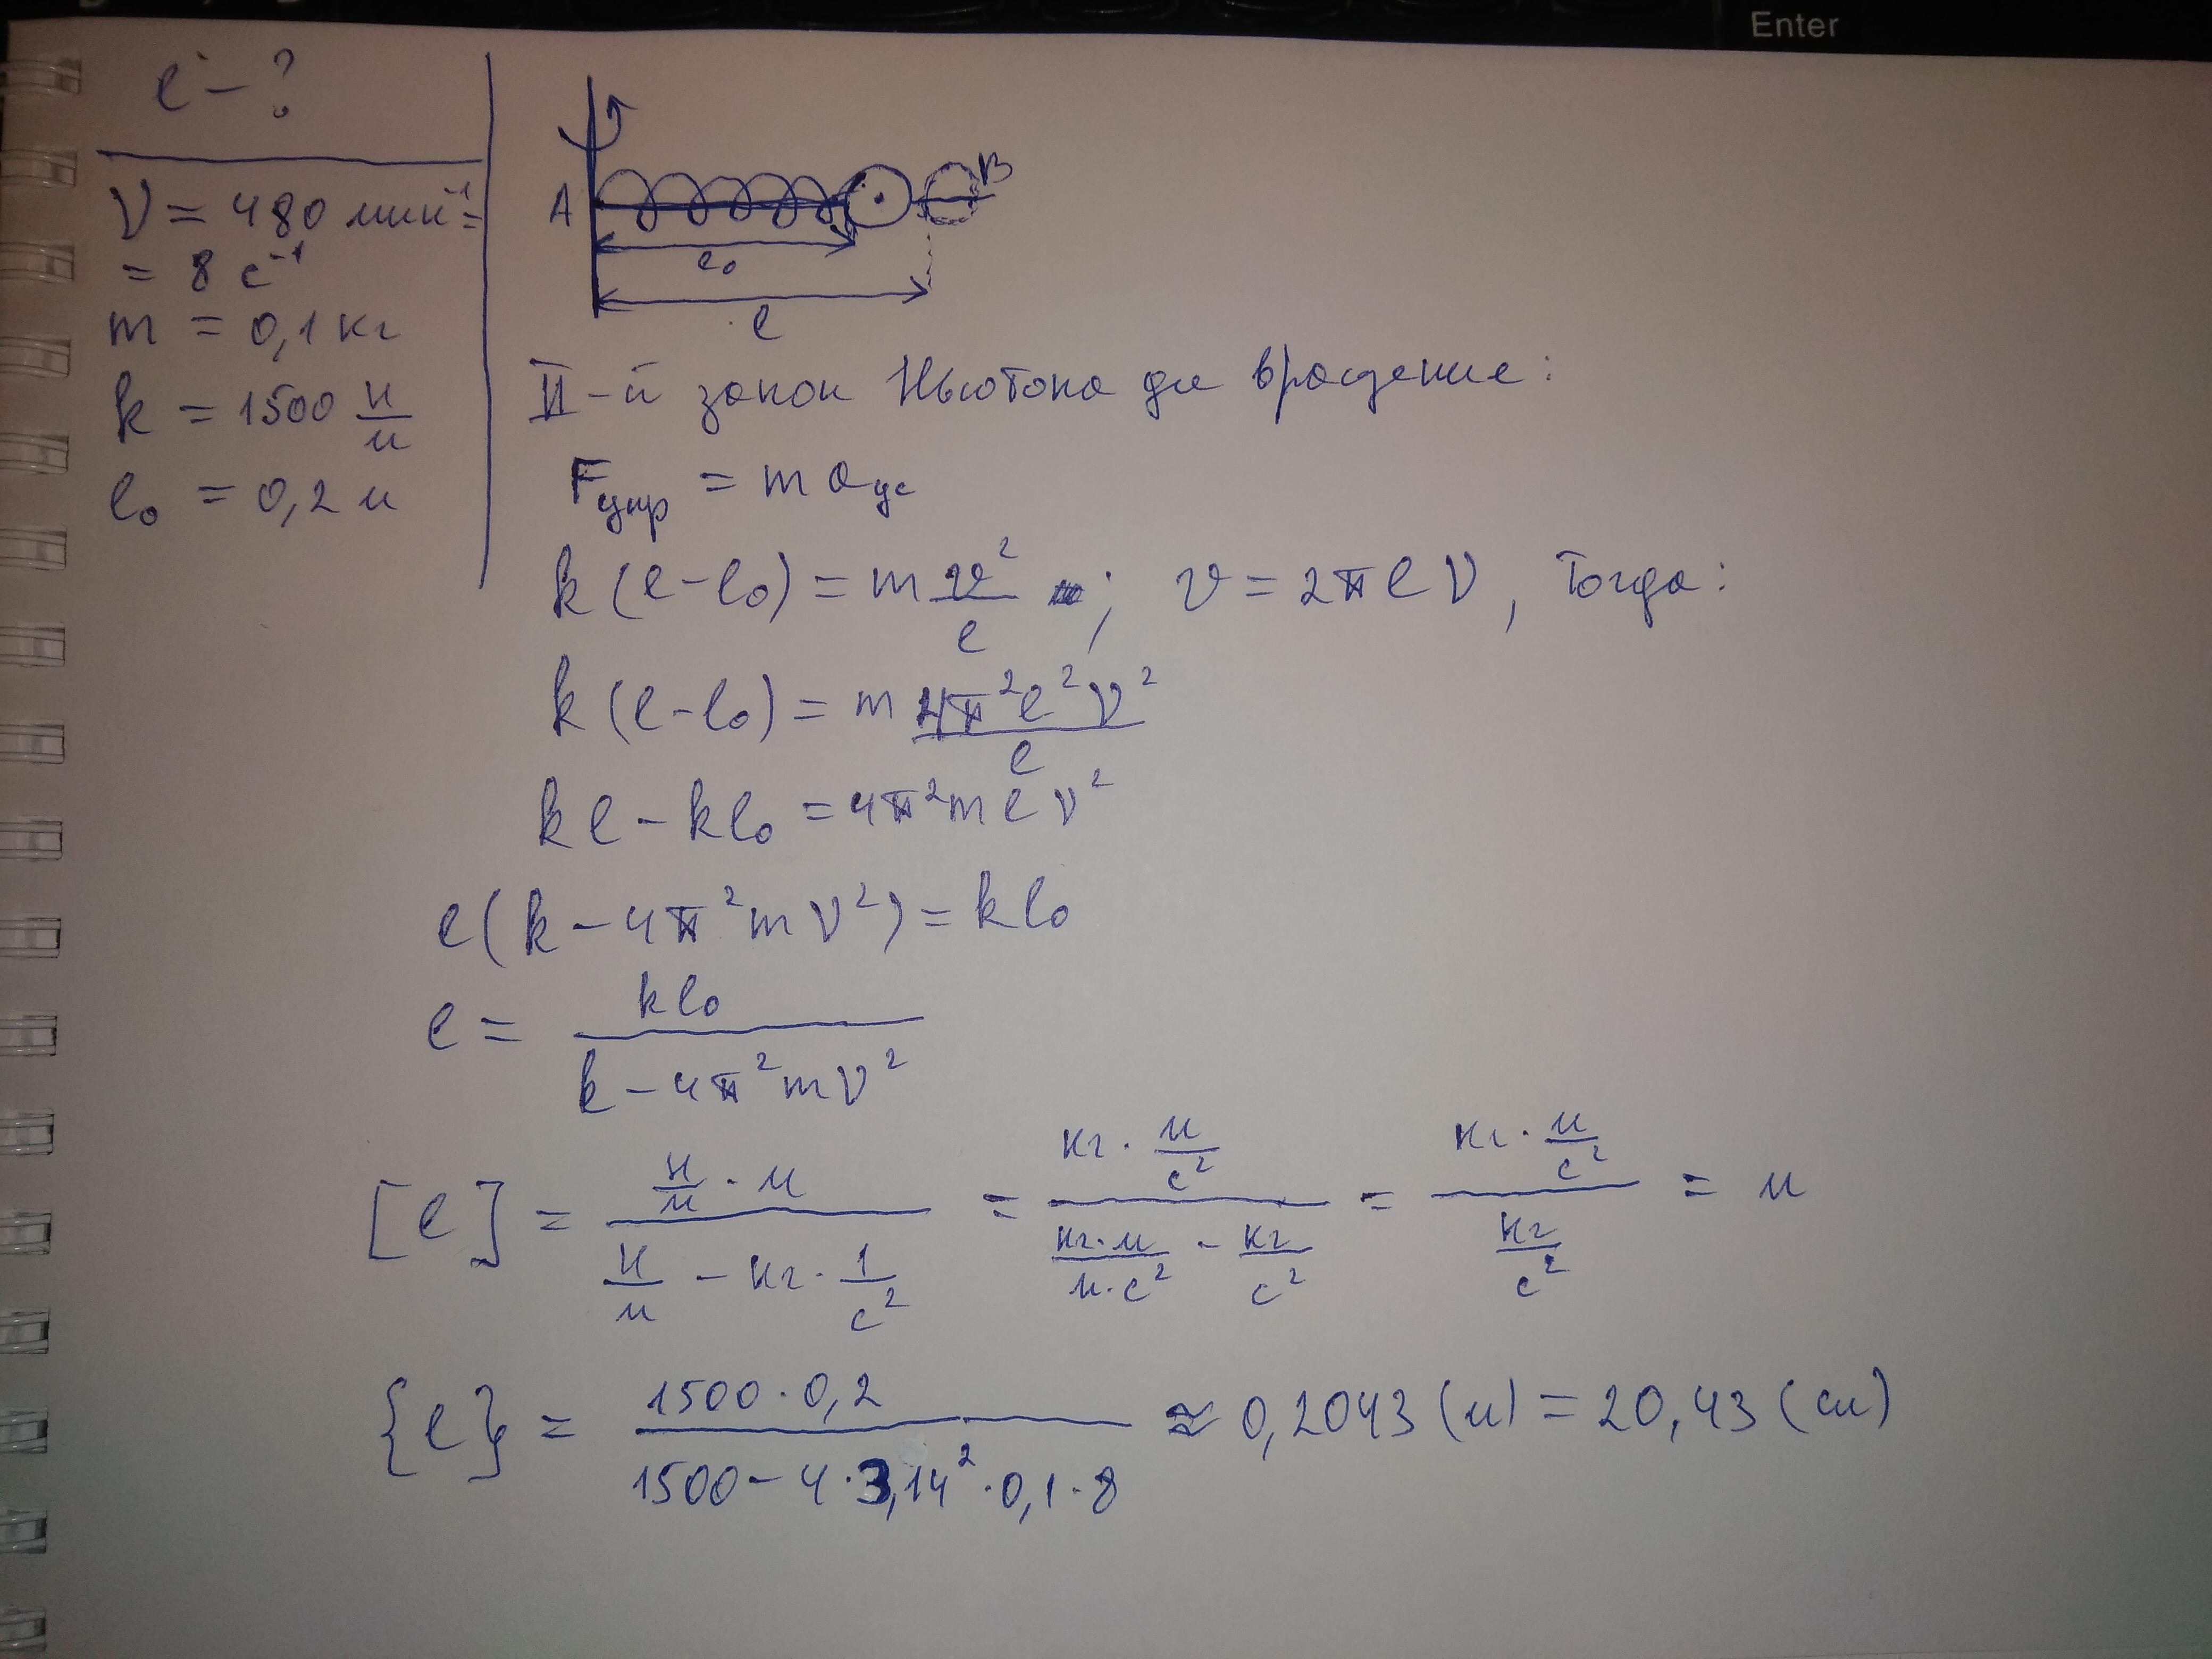 Enter
l - ?
ν = 480 мин⁻¹ =
= 8 с⁻¹
m = 0,1 кг
k = 1500 Н/м
l₀ = 0,2 м
A
B
l₀
l
II-й закон Ньютона для вращения:
Fупр = m aцс
k(l - l₀) = m v²/l ; v = 2πlν, тогда:
k(l - l₀) = m 4π²l²ν²/l
kl - kl₀ = 4π²mlν²
l(k - 4π²mν²) = kl₀
l = kl₀/(k - 4π²mν²)
[l] = (Н/м · м)/(Н/м - кг · 1/с²) = (кг · м/с²)/(кг·м/м·с² - кг/с²) = (кг · м/с²)/(кг/с²) = м
{l} = (1500 · 0,2)/(1500 - 4 · 3,14² · 0,1 · 8) ≈ 0,2043 (м) = 20,43 (см)